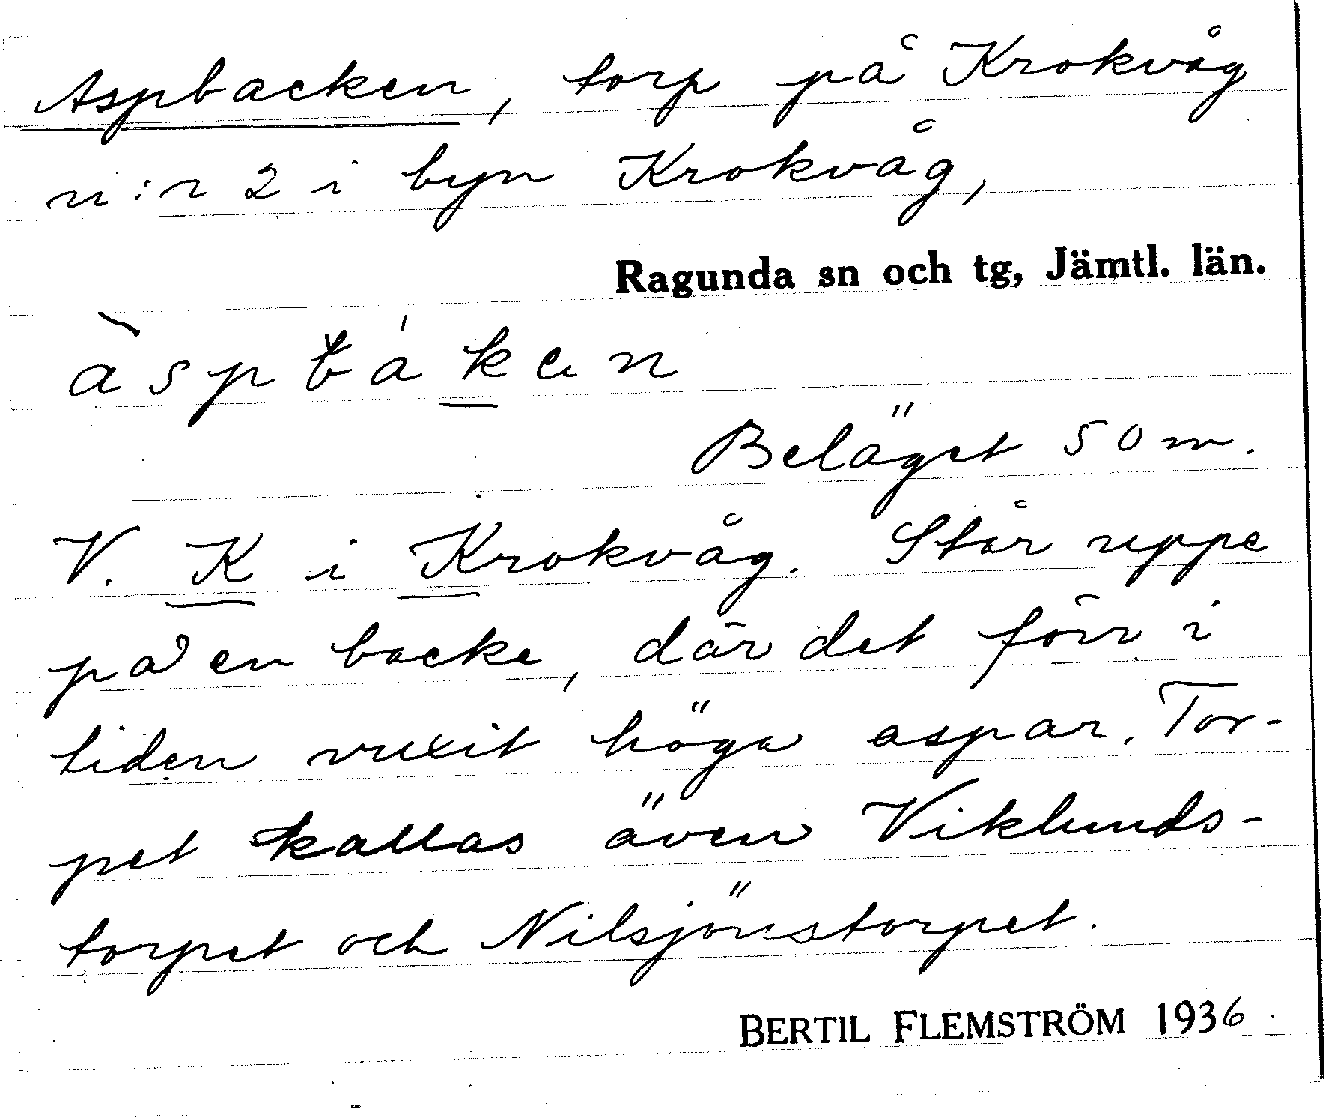 Aspbacken, torp på Krokvåg
n:r 2 i byn Krokvåg,
Ragunda sn och tg, Jämtl. län.
àspbákan
Beläget 50 m.
V. K i Krokvåg. Står uppe
på en backe, där det förr i
tiden vuxit höga aspar. Tor-
pet kallas även Viklunds-
torpet och Nilsjönstorpet.
BERTIL FLEMSTRÖM 1936